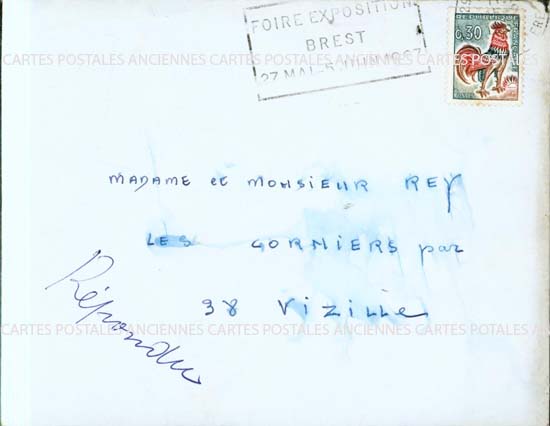 FOIRE EXPOSITION
BREST
27 MAI - 5 JUIN 1967
0,30
CARTES POSTALES ANCIENNES CARTES POSTALES ANCIENNES CARTES POSTALES
MADAME et MONSIEUR REY
LES CORNIERS par
38 VIZILLE
Répondu
CARTES POSTALES ANCIENNES CARTES POSTALES ANCIENNES CARTES POTALES